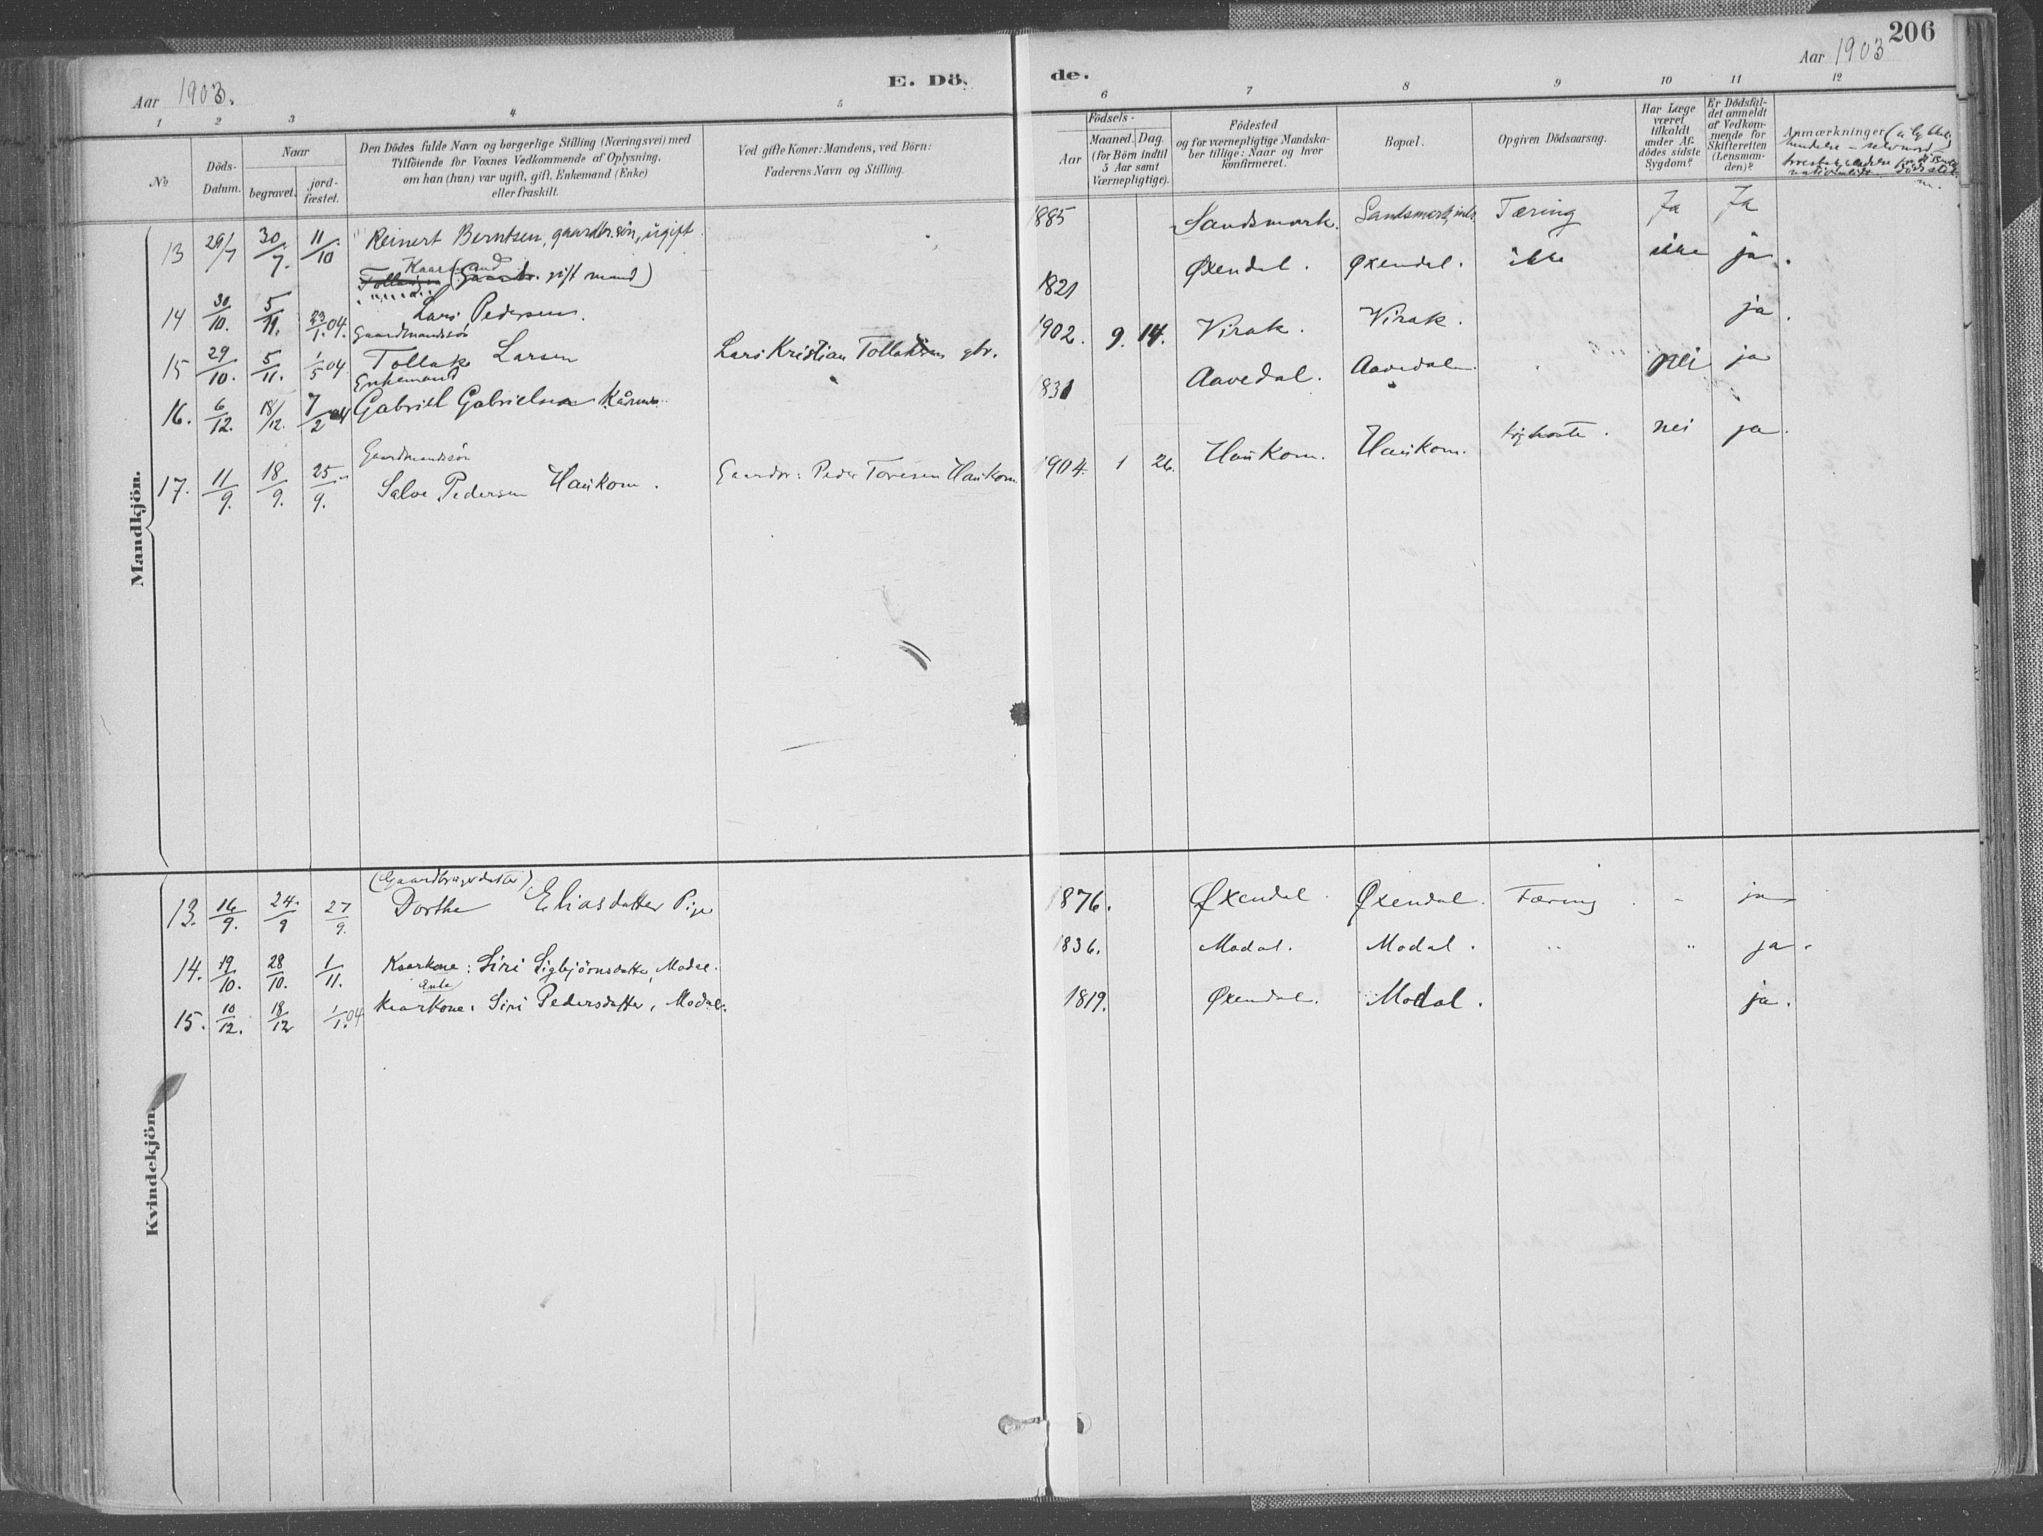 206
Aar 1903.
E. Dö
de.
Aar 1903
1 2 3 4 5 6 7 8 9 10 11 12
No
Döds-Datum.
Naar
begravet.
jord-fæstet.
Den Dödes fulde Navn og borgerlige Stilling (Næringsvei) med
Tilföiende for Voxnes Vedkommende af Oplysning,
om han (hun) var ugift, gift, Enkemand (Enke)
eller fraskilt.
Ved gifte Koner: Mandens, ved Börn:
Faderens Navn og Stilling.
Födsels-
Aar
Maaned. Dag.
(for Börn indtil
5 Aar samt
Værnepligtige).
Födested
og for værnepligtige Mandska-
ber tillige: Naar og hvor
konfirmeret.
Bopæl.
Opgiven Dödsaarsag.
Har Læge
været
tilkaldt
under Af-
dödes sidste
Sygdom?
Er Dödsfal-
det anmeldt
af Vedkom-
mende for
Skifteretten
(Lensman-
den)?
Anmærkninger
Mandkjön.
13 29/7 30/7. 11/10 Reinert Berntsen, gaardbr.sön, ugift. 1885 Sandsmark. Tæring Ja Ja
Kaarmand
gift mand)
14 30/10. 5/11. 23/1.04. Lars Pedersen. 1821 Øxendal. Øxendal. ikke ikke ja.
Gaardmandssön
15 29/10. 5/11. 1/5 04 Tollak Larsen Lars Kristian Tollaksen gbr. 1902. 9. 14. Virak. Virak. ja.
Enkemand
16. 6/12. 18/12. 7/2 04 Gabriel Gabrielsen 1831 Aavedal. Aavedal nei ja
Gaardmandssön
17. 11/9. 18/9. 25/9. Salve Pedersen Haükom. Gaardbr: Peder Toresen Haükom 1904. 1 26. Haükom. Haükom. nei ja.
Kvindekjön.
(Gaardbrugerdatter)
13. 16/9. 24/9 27/9. Dorthe Eliasdatter Pige 1876. Øxendal. Øxendal. Tæring. - ja
14. 19/10. 28/10. 1/11. Kaarkone: Siri Sigbjörnsdatter, Modal. 1836. Modal. Modal. " " ja.
Enke
15. 10/12. 18/12 1/1.04 Kaarkone: Siri Pedersdatter, Modal. 1819. Øxendal. Modal. ja.